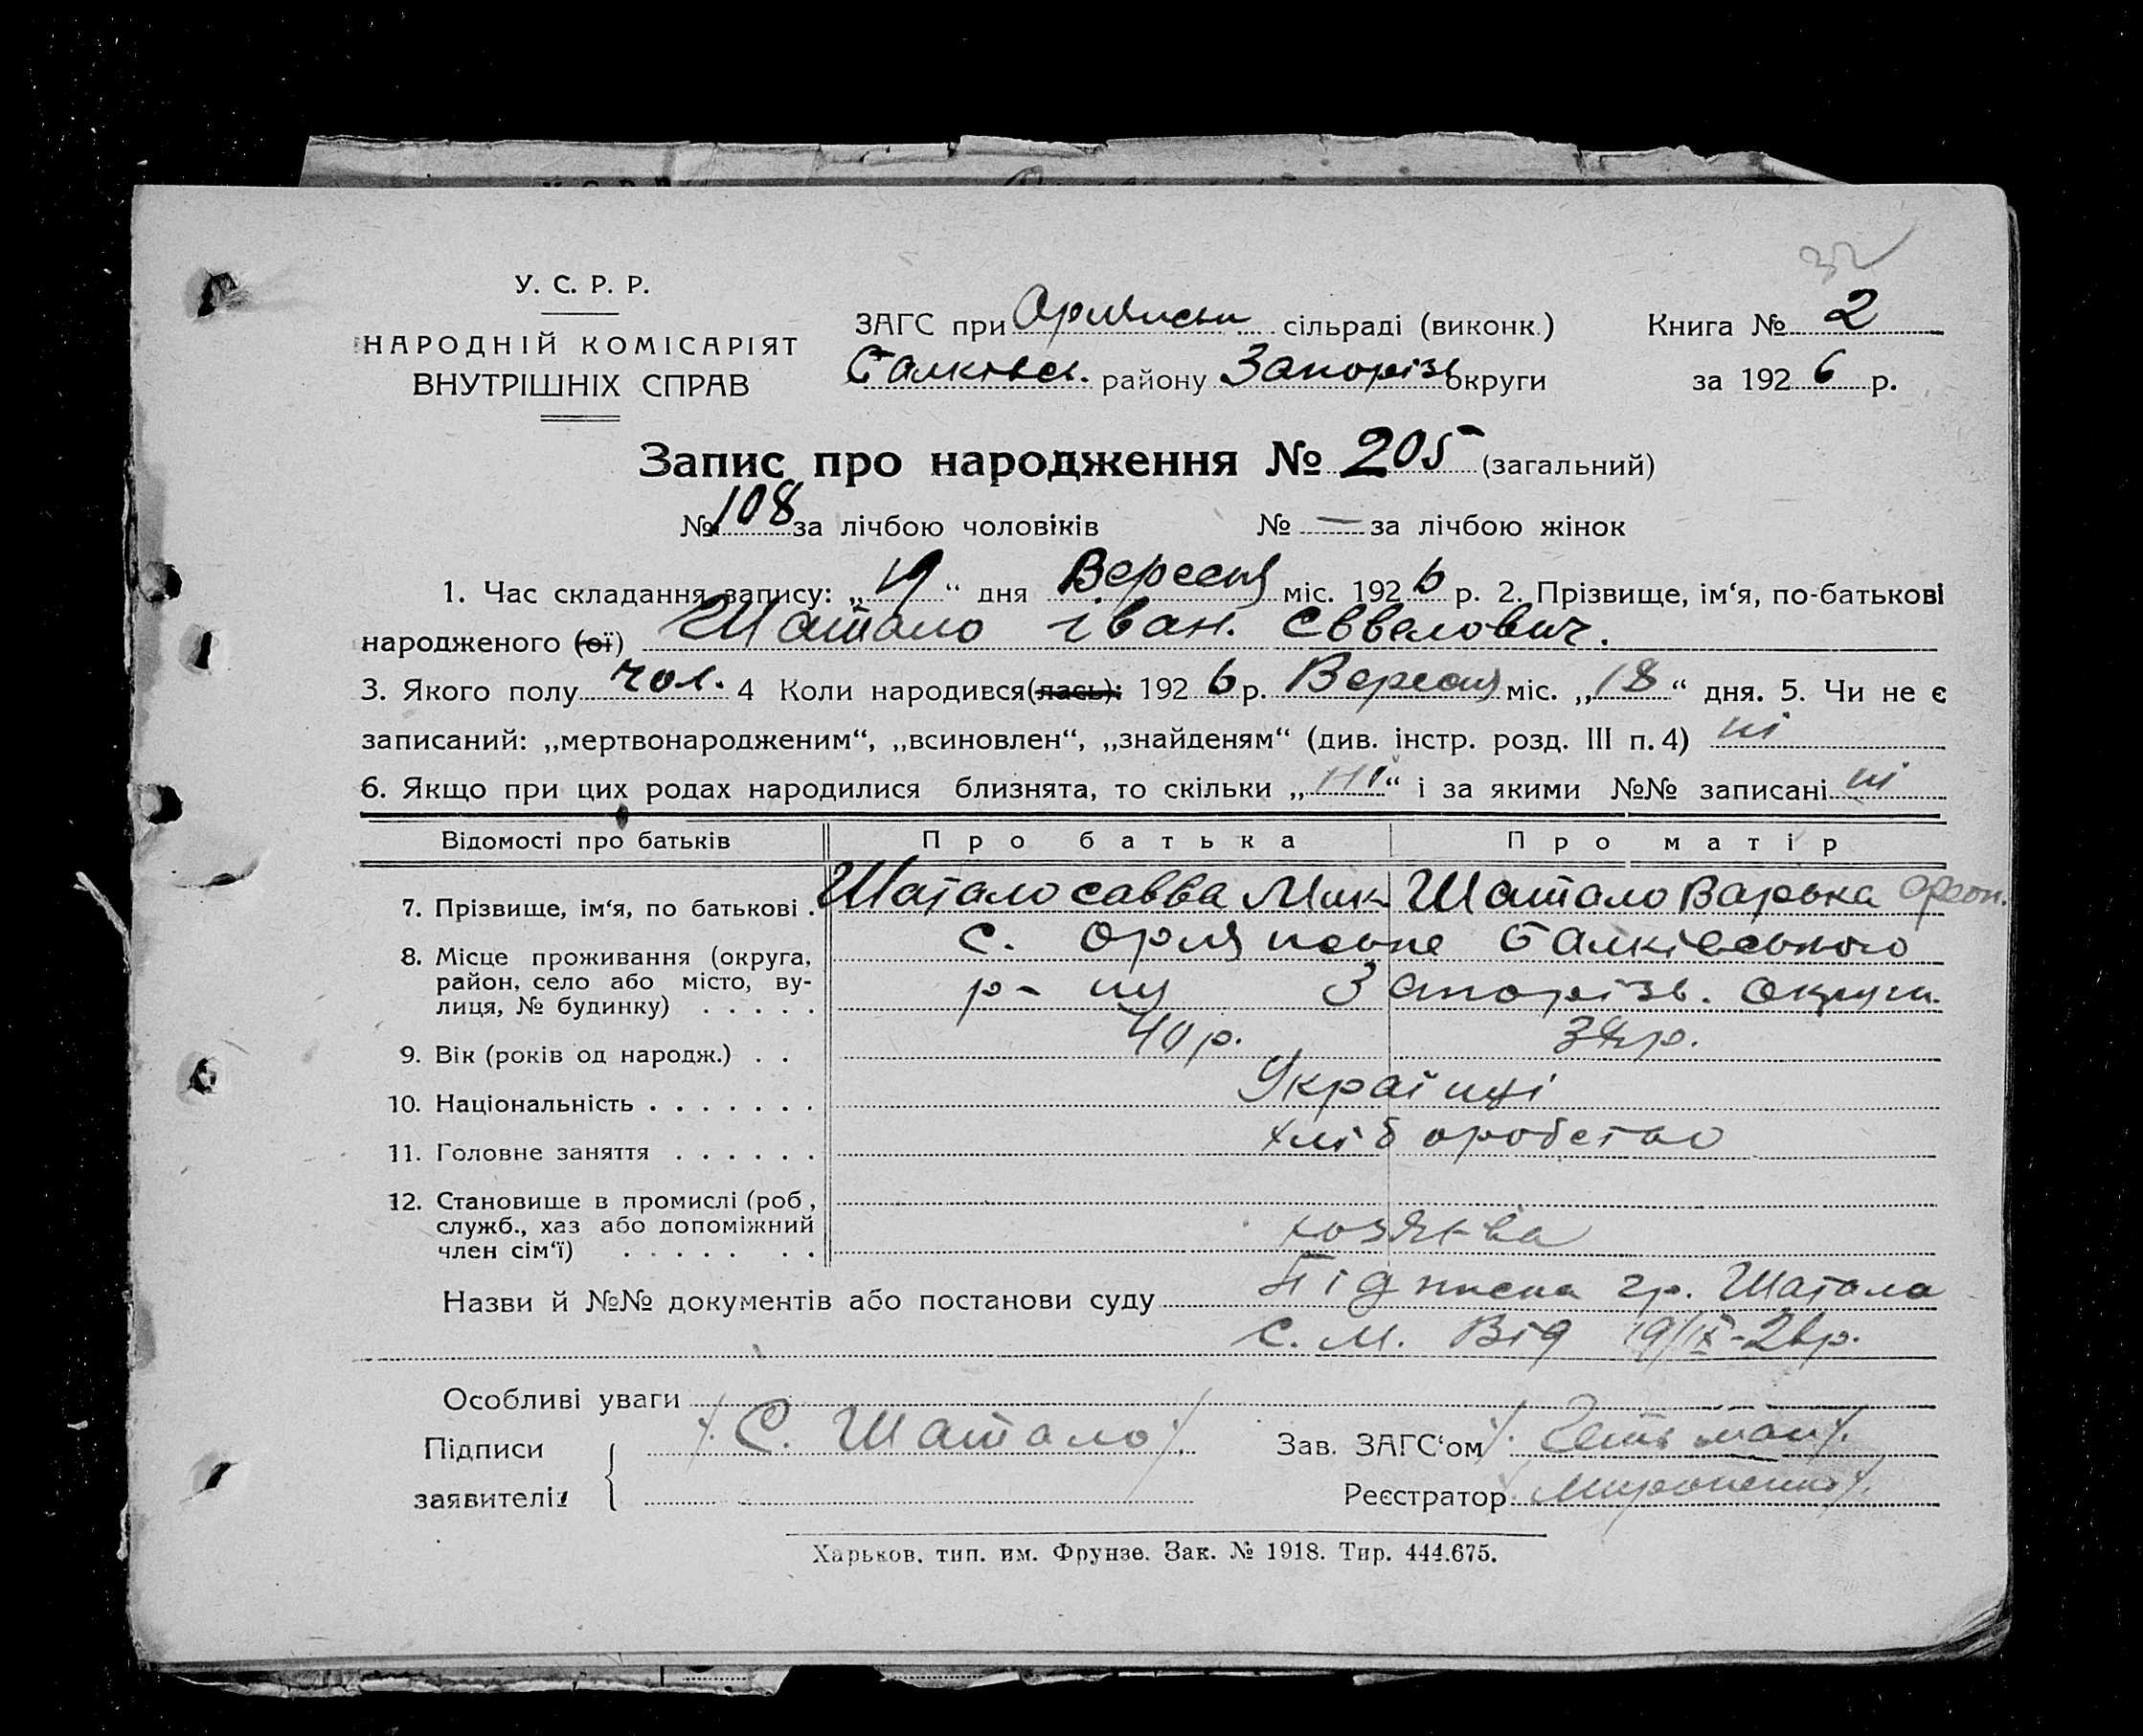 32
У. С. Р. Р.
НАРОДНІЙ КОМІСАРІЯТ
ВНУТРІШНІХ СПРАВ
ЗАГС при сільраді (виконк.)
Балківсь. району Запорізь округи
Книга № 2
за 1926 р.
Запис про народження № 205 (загальний)
№ 108 за лічбою чоловіків № — за лічбою жінок
1. Час складання запису: „19“ дня Вересня міс. 1926 р. 2. Прізвище, ім‘я, по-батькові
народженого (ої) Шатало Іван.
3. Якого полу чол. 4 Коли народився(лась): 1926 р. Вересня міс. „18“ дня. 5. Чи не є
записаний: „мертвонародженим“, „всиновлен“, „знайденям“ (див. інстр. розд. III п. 4) ні
6. Якщо при цих родах народилися близнята, то скільки „ні“ і за якими №№ записані ні
Відомості про батьків Про батька Про матір
7. Прізвище, ім‘я, по батькові . Шатало Савва Мик Шатало Варька
8. Місце проживання (округа, район, село або місто, вулиця, № будинку) . . . . . с. Орлянське Балківського
р-ну Запорізь. Округи.
9. Вік (років од народж.) . . 40 р.
10. Національність . . . . . . . Українці
11. Головне заняття . . . . . . хліборобство
12. Становище в промислі (роб, служб., хаз або допоміжний член сім‘ї) . . . . . . .
Назви й №№ документів або постанови суду Підписка гр. Шатала
С. М. Від 19/IX-26р.
Особливі уваги
Підписи
заявителів
/. С. Шатало /.
Зав. ЗАГС‘ом /. Гетьман /.
Реєстратор Мироненко /.
Харьков. тип. им. Фрунзе. Зак. № 1918. Тир. 444.675.